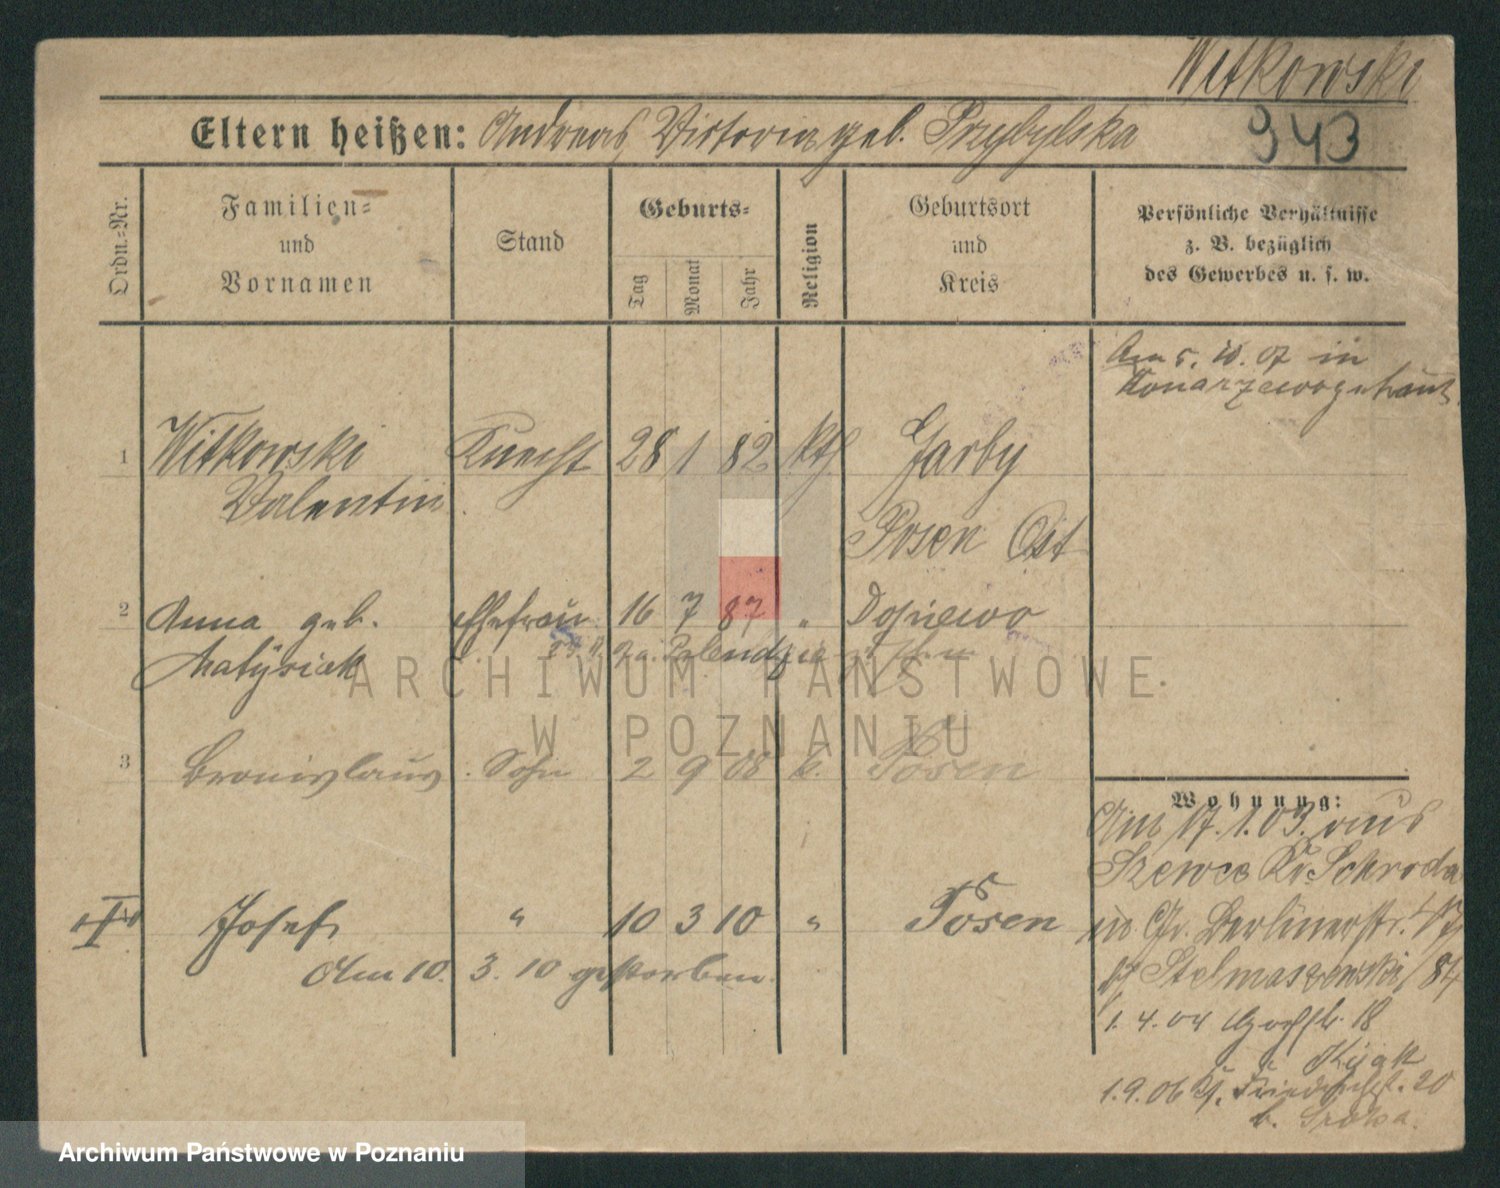 Witkowski
Eltern heißen: Andreas, Victoria geb. Przybylska
943
Ordn.-Nr.
Familien-
und
Vornamen
Stand
Geburts-
Tag
Monat
Jahr
Religion
Geburtsort
und
Kreis
Persönliche Verhältnisse
z. B. bezüglich
des Gewerbes u. s. w.
Am 5. 10. 07 in
Konarzewo getraut.
1 Witkowski Knecht 28 1 82 kth Garby
Valentin
Posen Ost
2 Anna geb. Ehefrau 16 7 87 " Dopiewo
Matysiak
3 Bronislaus Sohn 2 9 08 k. Posen
Josef " 10 3 10 " Posen
Am 10. 3. 10 gestorben.
Wohnung:
Am 17. 1. 03. aus
Szewce Kr. Schroda
in Gr. Berlinerstr.
Stelmaszewski 84
1. 4. 04 18
1. 9. 06 20
b.
ARCHIWUM PAŃSTWOWE
W POZNANIU
Archiwum Państwowe w Poznaniu